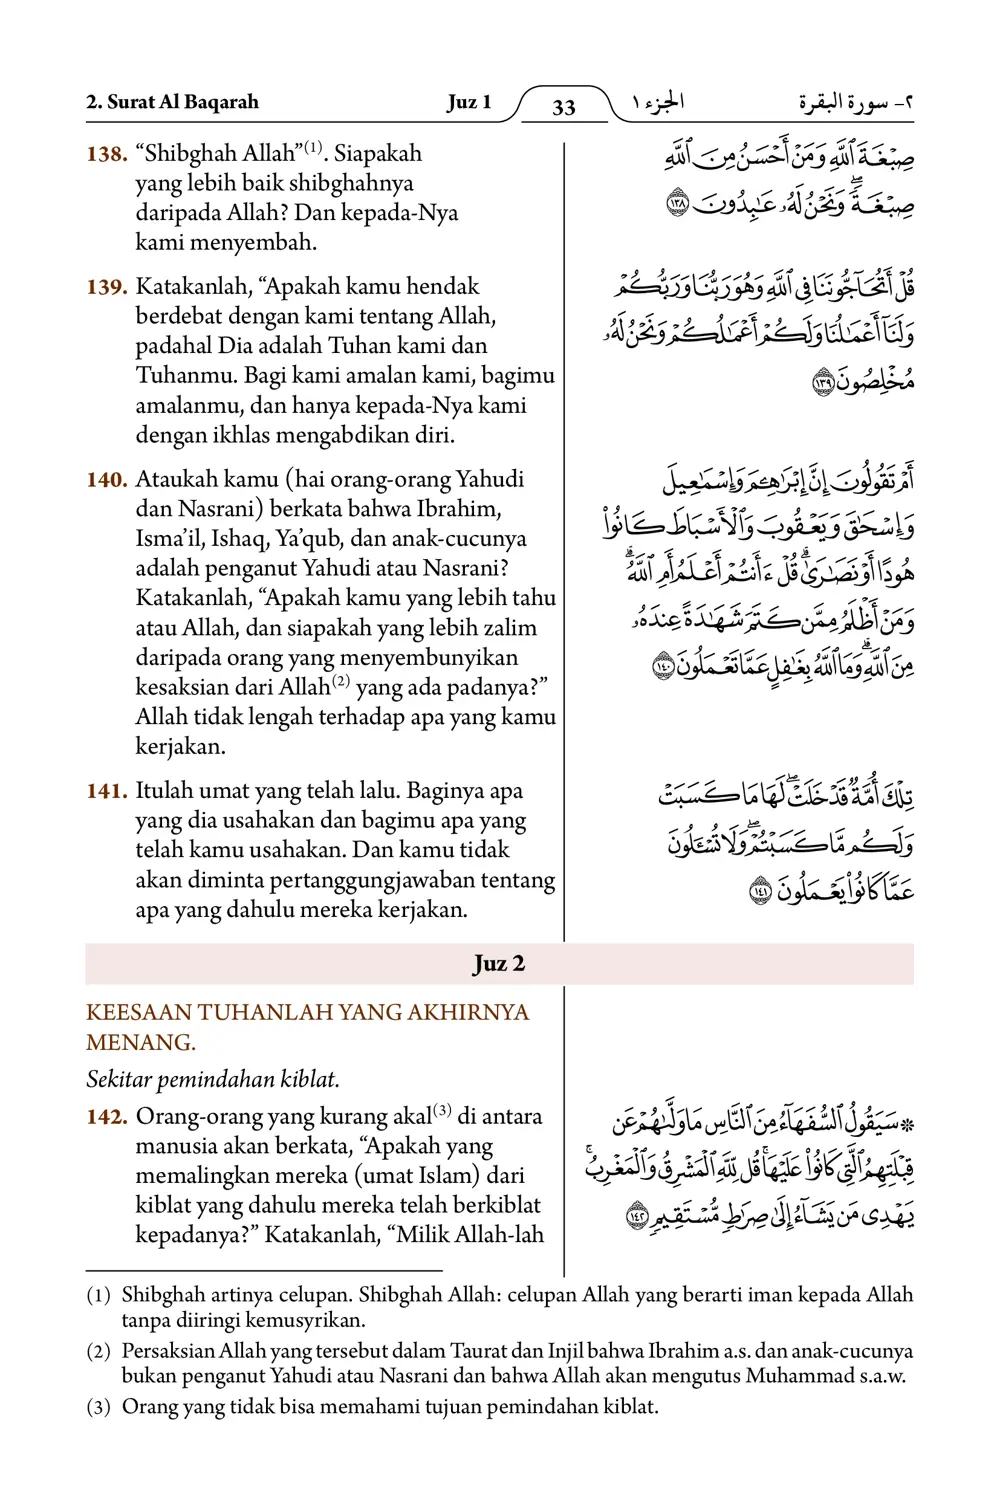 2. Surat Al Baqarah Juz 1 33 الجزء ١ ٢- سورة البقرة
138. “Shibghah Allah”(1). Siapakah
yang lebih baik shibghahnya
daripada Allah? Dan kepada-Nya
kami menyembah.
صِبْغَةَ ٱللَّهِ وَمَنْ أَحْسَنُ مِنَ ٱللَّهِ
صِبْغَةً ۖ وَنَحْنُ لَهُۥ عَـٰبِدُونَ ١٣٨
139. Katakanlah, “Apakah kamu hendak
berdebat dengan kami tentang Allah,
padahal Dia adalah Tuhan kami dan
Tuhanmu. Bagi kami amalan kami, bagimu
amalanmu, dan hanya kepada-Nya kami
dengan ikhlas mengabdikan diri.
قُلْ أَتُحَآجُّونَنَا فِى ٱللَّهِ وَهُوَ رَبُّنَا وَرَبُّكُمْ
وَلَنَآ أَعْمَـٰلُنَا وَلَكُمْ أَعْمَـٰلُكُمْ وَنَحْنُ لَهُۥ
مُخْلِصُونَ ١٣٩
140. Ataukah kamu (hai orang-orang Yahudi
dan Nasrani) berkata bahwa Ibrahim,
Isma’il, Ishaq, Ya’qub, dan anak-cucunya
adalah penganut Yahudi atau Nasrani?
Katakanlah, “Apakah kamu yang lebih tahu
atau Allah, dan siapakah yang lebih zalim
daripada orang yang menyembunyikan
kesaksian dari Allah(2) yang ada padanya?”
Allah tidak lengah terhadap apa yang kamu
kerjakan.
أَمْ تَقُولُونَ إِنَّ إِبْرَٰهِـۧمَ وَإِسْمَـٰعِيلَ
وَإِسْحَـٰقَ وَيَعْقُوبَ وَٱلْأَسْبَاطَ كَانُوا۟
هُودًا أَوْ نَصَـٰرَىٰ ۗ قُلْ ءَأَنتُمْ أَعْلَمُ أَمِ ٱللَّهُ ۗ
وَمَنْ أَظْلَمُ مِمَّن كَتَمَ شَهَـٰدَةً عِندَهُۥ
مِنَ ٱللَّهِ ۗ وَمَا ٱللَّهُ بِغَـٰفِلٍ عَمَّا تَعْمَلُونَ ١٤٠
141. Itulah umat yang telah lalu. Baginya apa
yang dia usahakan dan bagimu apa yang
telah kamu usahakan. Dan kamu tidak
akan diminta pertanggungjawaban tentang
apa yang dahulu mereka kerjakan.
تِلْكَ أُمَّةٌ قَدْ خَلَتْ ۖ لَهَا مَا كَسَبَتْ
وَلَكُم مَّا كَسَبْتُمْ ۖ وَلَا تُسْـَٔلُونَ
عَمَّا كَانُوا۟ يَعْمَلُونَ ١٤١
Juz 2
KEESAAN TUHANLAH YANG AKHIRNYA
MENANG.
Sekitar pemindahan kiblat.
142. Orang-orang yang kurang akal(3) di antara
manusia akan berkata, “Apakah yang
memalingkan mereka (umat Islam) dari
kiblat yang dahulu mereka telah berkiblat
kepadanya?” Katakanlah, “Milik Allah-lah
۞ سَيَقُولُ ٱلسُّفَهَآءُ مِنَ ٱلنَّاسِ مَا وَلَّىٰهُمْ عَن
قِبْلَتِهِمُ ٱلَّتِى كَانُوا۟ عَلَيْهَا ۚ قُل لِّلَّهِ ٱلْمَشْرِقُ وَٱلْمَغْرِبُ ۚ
يَهْدِى مَن يَشَآءُ إِلَىٰ صِرَٰطٍ مُّسْتَقِيمٍ ١٤٢
(1) Shibghah artinya celupan. Shibghah Allah: celupan Allah yang berarti iman kepada Allah
tanpa diiringi kemusyrikan.
(2) Persaksian Allah yang tersebut dalam Taurat dan Injil bahwa Ibrahim a.s. dan anak-cucunya
bukan penganut Yahudi atau Nasrani dan bahwa Allah akan mengutus Muhammad s.a.w.
(3) Orang yang tidak bisa memahami tujuan pemindahan kiblat.